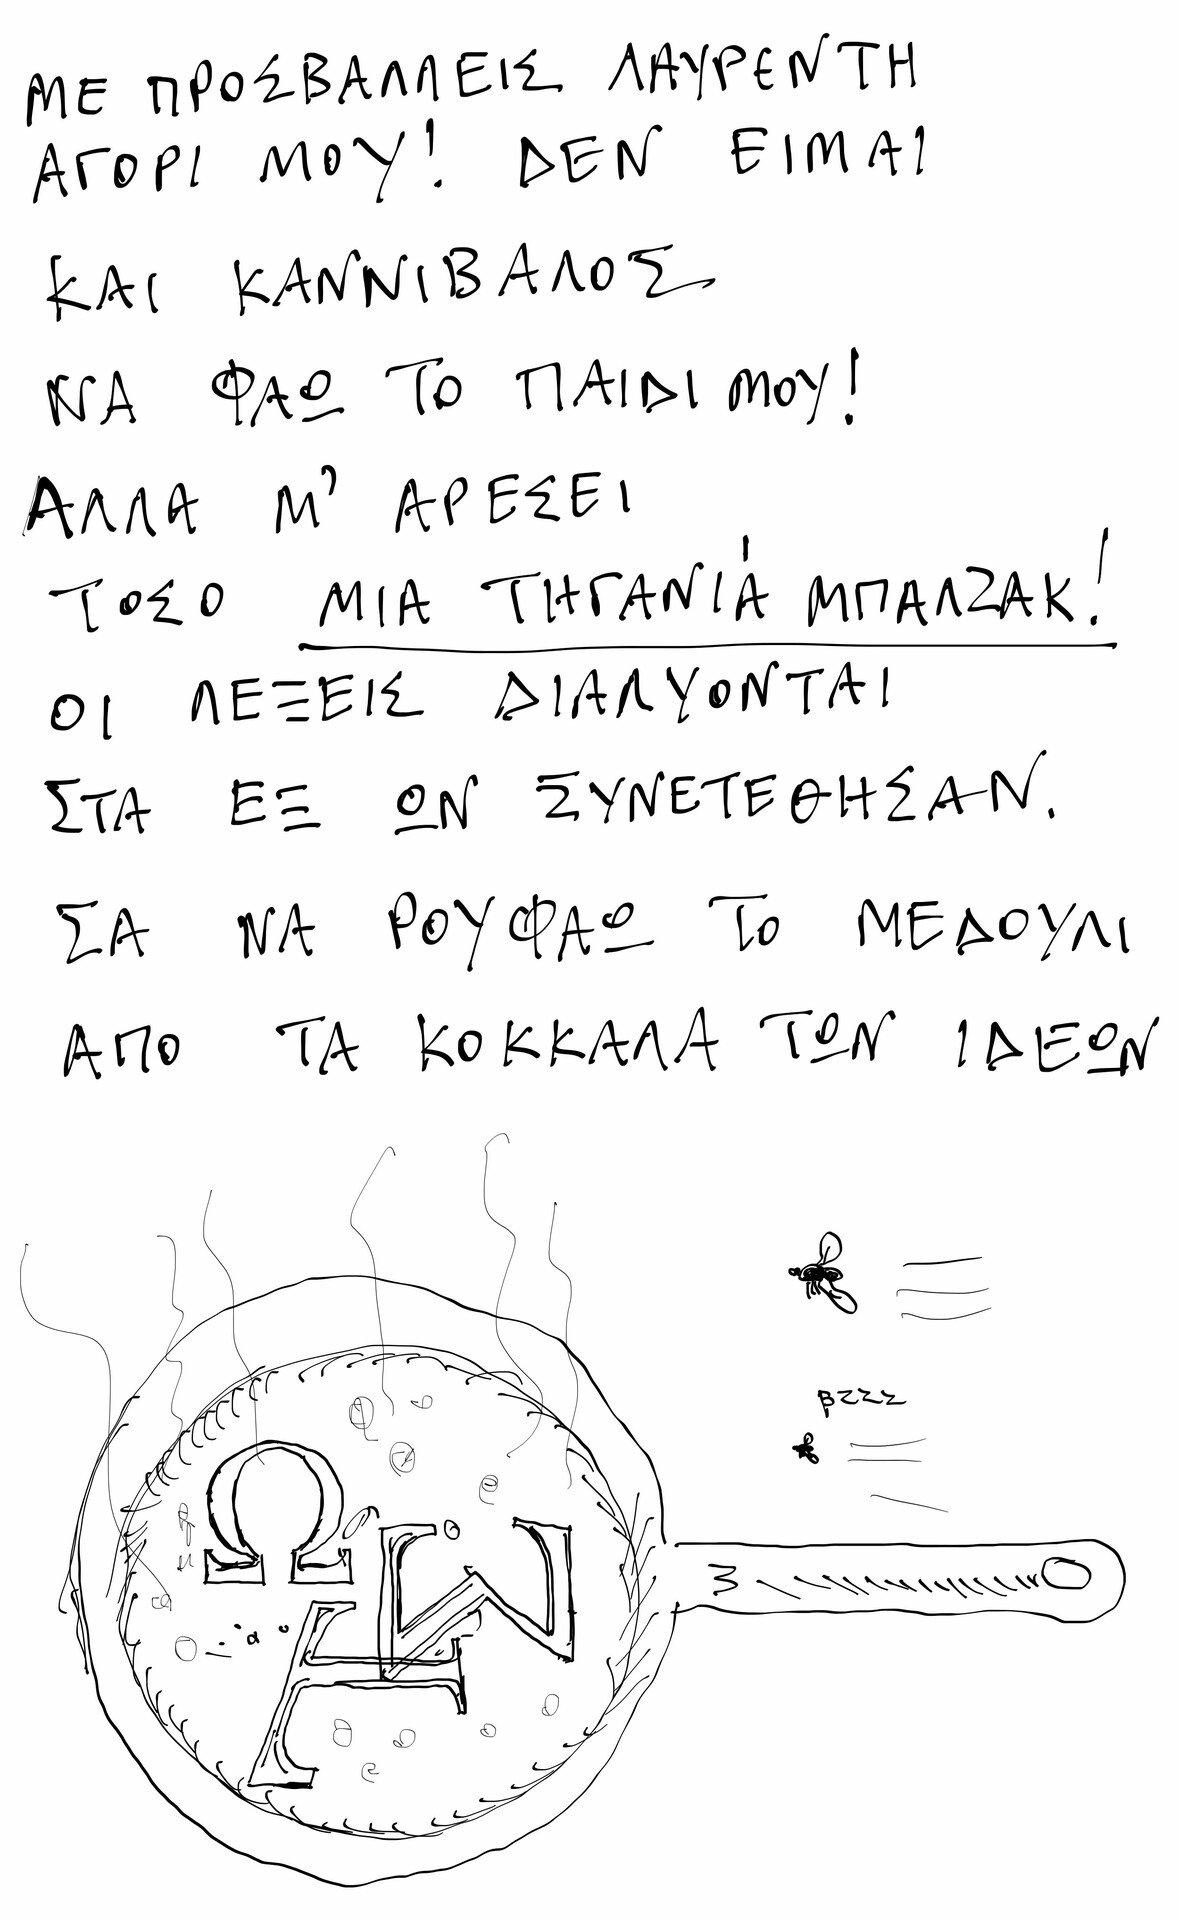 ΜΕ ΠΡΟΣΒΑΛΛΕΙΣ ΛΑΥΡΕΝΤΗ
ΑΓΟΡΙ ΜΟΥ! ΔΕΝ ΕΙΜΑΙ
ΚΑΙ ΚΑΝΝΙΒΑΛΟΣ
ΝΑ ΦΑΩ ΤΟ ΠΑΙΔΙ ΜΟΥ!
ΑΛΛΑ Μ' ΑΡΕΣΕΙ
ΤΟΣΟ ΜΙΑ ΤΗΓΑΝΙΆ ΜΠΑΛΖΑΚ!
ΟΙ ΛΕΞΕΙΣ ΔΙΑΛΥΟΝΤΑΙ
ΣΤΑ ΕΞ ΩΝ ΣΥΝΕΤΕΘΗΣΑΝ.
ΣΑ ΝΑ ΡΟΥΦΑΩ ΤΟ ΜΕΔΟΥΛΙ
ΑΠΟ ΤΑ ΚΟΚΚΑΛΑ ΤΩΝ ΙΔΕΩΝ
βζζζ
Ω